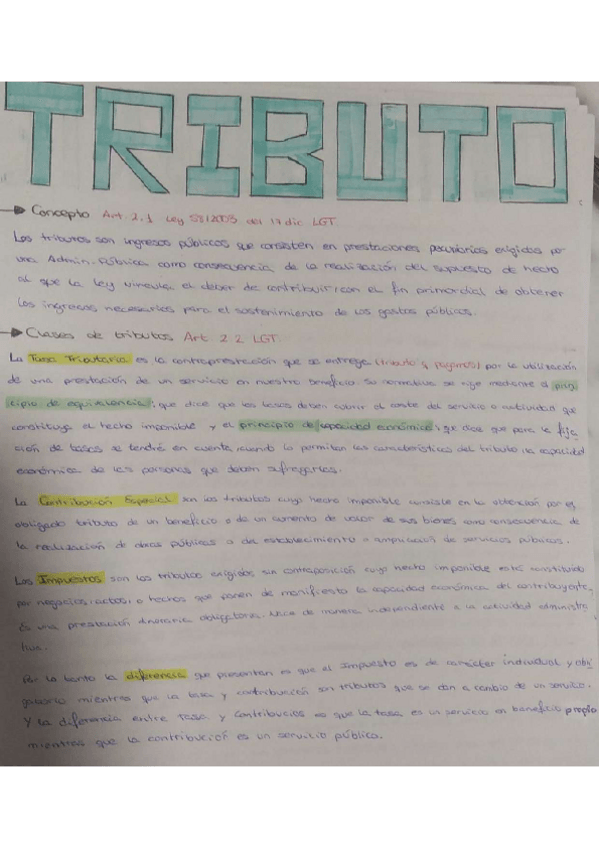 TRIBUTO
Concepto Art. 2.1 Ley 58/2003 del 17 dic LGT
Los tributos son ingresos públicos que consisten en prestaciones pecuniarias exigidos por
una Admin. Pública como consecuencia de la realización del supuesto de hecho
al que la Ley vincula el deber de contribuir, con el fin primordial de obtener
los ingresos necesarios para el sostenimiento de los gastos públicos.
Clases de tributos Art 2.2 LGT
La Tasa Tributaria es la contraprestación que se entrega (tributo q pagamos) por la utilización
de una prestación de un servicio en nuestro beneficio. Su normativa se rige mediante el prin
cipio de equivalencia; que dice que las tasas deben cubrir el coste del servicio o actividad que
constituya el hecho imponible y el principio de capacidad económica; que dice que para la fija
ción de tasas se tendrá en cuenta, cuando lo permitan las características del tributo, la capacidad
económica de las personas que deben sufragarlas.
La Contribución Especial son los tributos cuyo hecho imponible consiste en la obtención por el
obligado tributo de un beneficio o de un aumento de valor de sus bienes como consecuencia de
la realización de obras públicas o del establecimiento o ampliación de servicios públicos.
Los Impuestos son los tributos exigidos sin contraposición cuyo hecho imponible está constituido
por negocios, actos, o hechos que ponen de manifiesto la capacidad económica del contribuyente,
Es una prestación dineraria obligatoria. Nace de manera independiente a la actividad administra
tiva.
Por lo tanto la diferencia que presentan es que el Impuesto es de carácter individual y obli
gatorio mientras que la tasa y contribución son tributos que se dan a cambio de un servicio.
Y la diferencia entre Tasa y Contribución es que la tasa es un servicio en beneficio propio
mientras que la contribución es un servicio público.